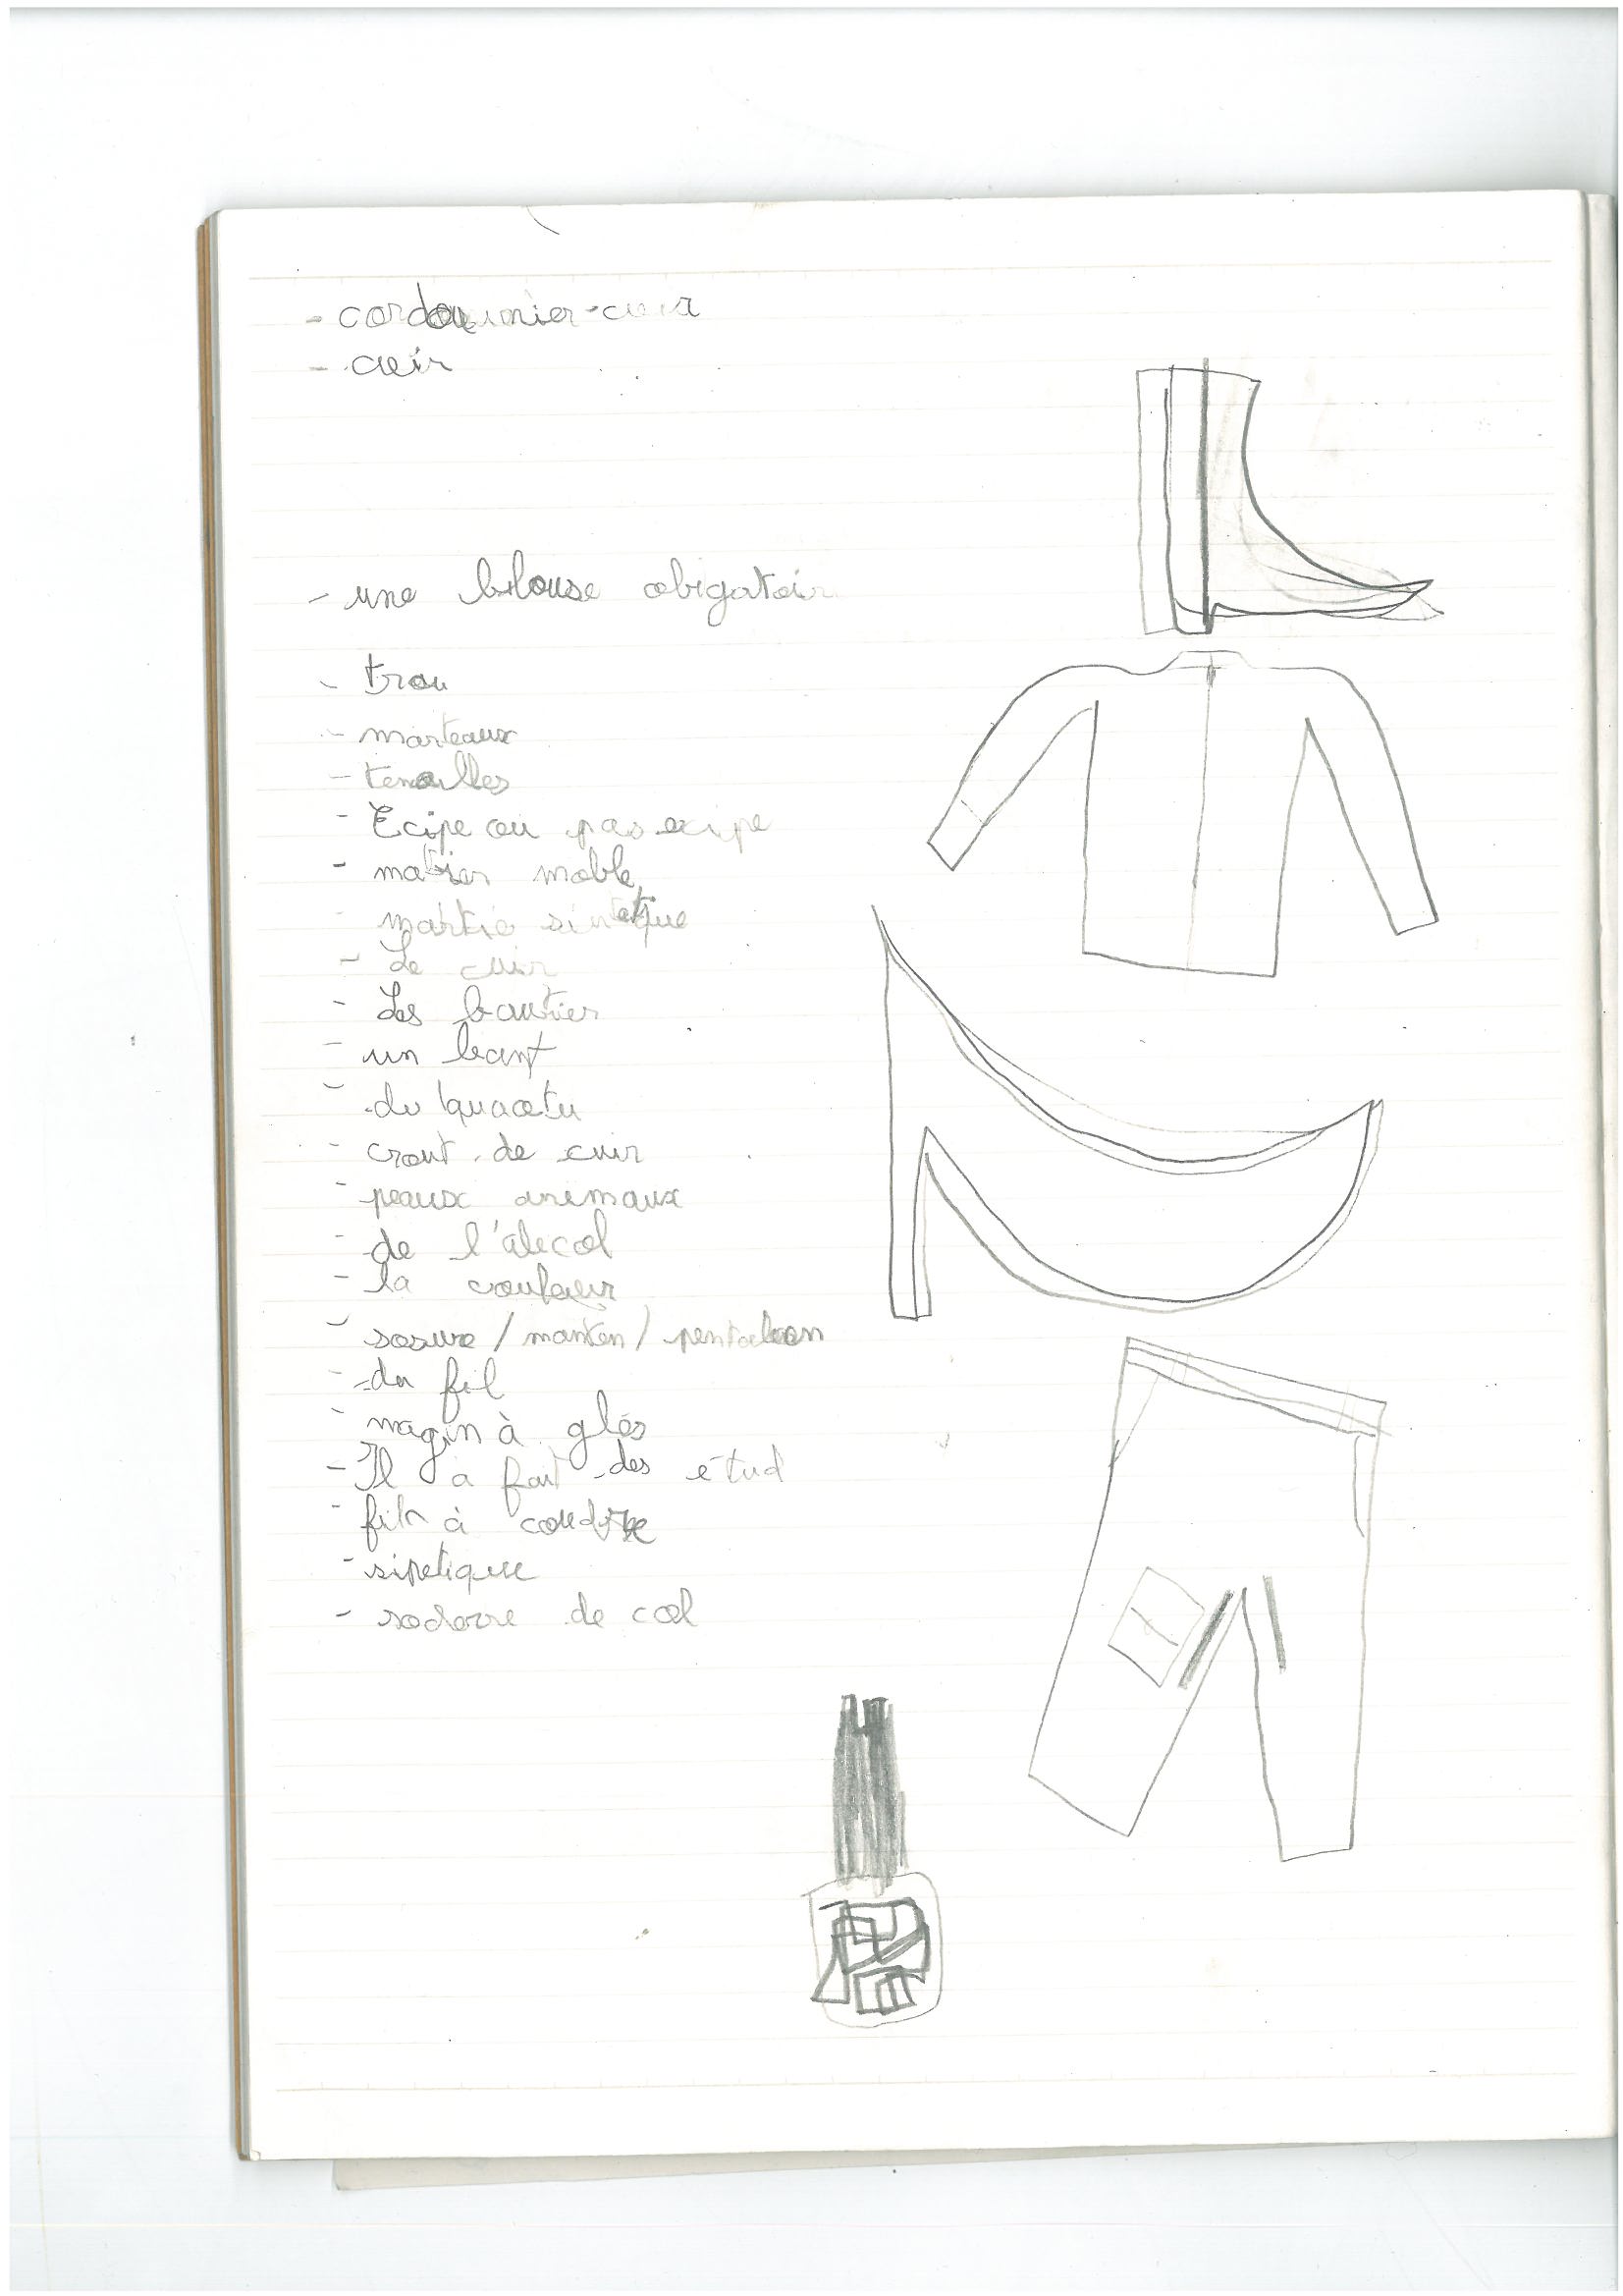 - cordounier-cuir
- cuir
- une blouse obigatoir
- trou
- marteaux
- tenailles
- Ecipe ou pas ecipe
- matier moble
- martie sintetique
- Le cuir
- Les bautier
- un bant
- du
- crout de cuir
- peaux animaux
- de l'alecol
- la couleur
- sosure / manten / pentaloon
- du fil
- magin à glos
- Il a fait des étud
- fil à coudre
- sipetique
- de col